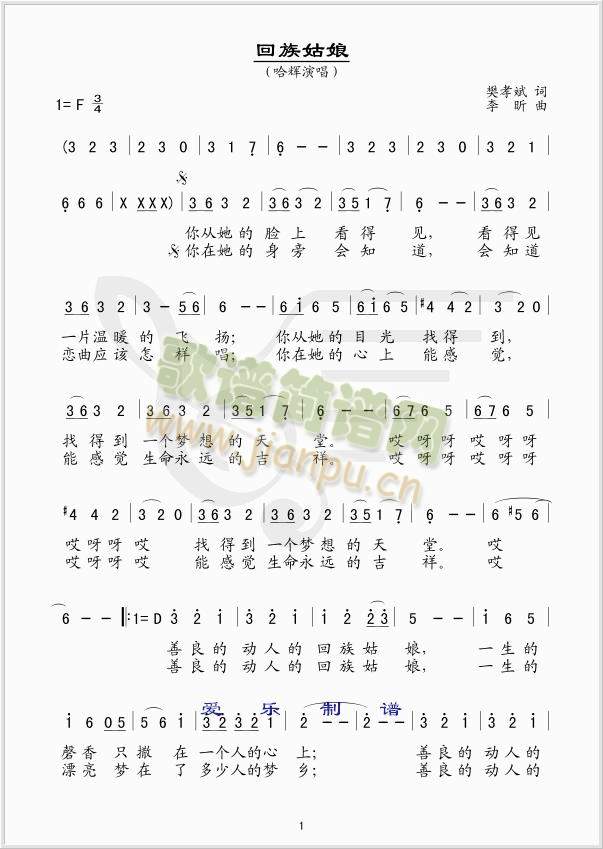 回族姑娘
(哈辉演唱)
1= F 3/4
樊孝斌 词
李 昕 曲
(3 2 3 | 2 3 0 | 3 1 7 | 6 - - | 3 2 3 | 2 3 0 | 3 2 1 |
6 6 6 | X XXX XXX) | 3 63 2 | 3 63 2 | 3 51 7 | 6 - - | 3 63 2 |
你从她的 脸上 看得 见, 看得见
你在她的 身旁 会知 道, 会知道
3 63 2 | 3 - 56 | 6 - - | 6 1 65 | 61 65 | #4 4 2 | 3 2 0 |
一片温暖的 飞 扬; 你从她的目光 找得 到,
恋曲应该怎 样 唱; 你在她的心上 能感 觉,
3 63 2 | 3 63 2 | 2 23 0 | 3 51 7 | 6 - - | 6 76 5 | 6 76 5 |
找得到 一个梦想的天 堂。 哎呀呀 哎呀呀
能感觉 生命永远的吉 祥。 哎呀呀 哎呀呀
#4 4 2 | 3 2 0 | 3 63 2 | 3 63 2 | 2 23 0 | 3 51 7 | 6 - - | 6 #56 |
哎呀呀哎 找得到一个梦想的天 堂。 哎
哎呀呀哎 能感觉生命永远的吉 祥。 哎
6 - - ‖: 1= D 3 2 1 | 3 2 1 | 3 2 1 | 1 2 23 | 5 - - | 5 2 1 |
善良的动人的回族姑 娘, 一生的
善良的动人的回族姑 娘, 一生的
爱 乐 制 谱
1 6 05 | 5 6 1 | 32 32 1 | 2 - - | 2 - - | 3 2 1 | 3 2 1 |
磬香 只撒 在 一个人的心上; 善良的动人的
漂亮 梦在 了 多少人的梦 乡; 善良的动人的
歌谱简谱网
www.jianpu.cn
1